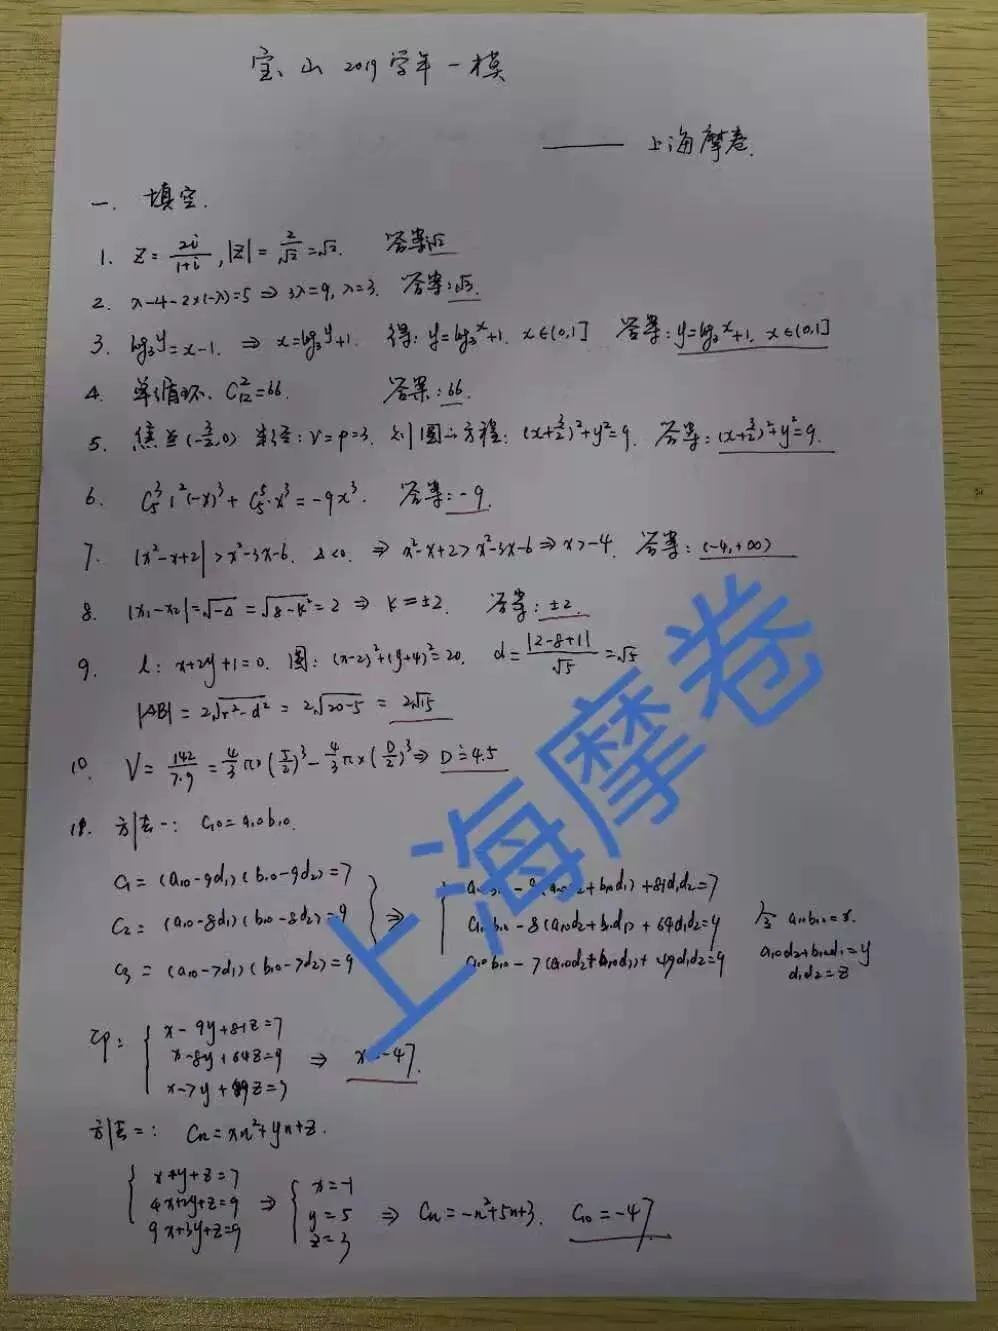 宝山2019学年一模
——上海摩卷.
一. 填空.
1. z=2i/(1+i), |z|=2/√2=√2. 答案√2
2. λ-4-2×(-λ)=5⇒3λ=9, λ=3. 答案:√3.
3. log₃y=x-1. ⇒ x=log₃y+1. 得: y=log₃x+1. x∈(0,1] 答案: y=log₃x+1. x∈(0,1]
4. 单循环. C₁₂²=66. 答案: 66.
5. 焦点(-3/2,0) 半径: r=p=3. 则圆的方程: (x+3/2)²+y²=9. 答案: (x+3/2)²+y²=9.
6. C₅³1²(-x)³+C₅⁵·x³=-9x³. 答案: -9.
7. |x²-x+2|>x²-3x-6. Δ<0. ⇒ x²-x+2>x²-3x-6⇒x>-4. 答案: (-4,+∞)
8. |x₁-x₂|=√-Δ=√8-k²=2 ⇒ k=±2. 答案: ±2.
9. l: x+2y+1=0. 圆: (x-2)²+(y+4)²=20. d=|2-8+1|/√5=√5
|AB|=2√r²-d²=2√20-5=2√15
10. V=142/7.9=4/3π×(5/2)³-4/3π×(D/2)³⇒D≐4.5
11. 方法一: C₁₀=a₁₀b₁₀.
C₁=(a₁₀-9d₁)(b₁₀-9d₂)=7
C₂=(a₁₀-8d₁)(b₁₀-8d₂)=9
C₃=(a₁₀-7d₁)(b₁₀-7d₂)=9
⇒
a₁₀b₁₀-9(a₁₀d₂+b₁₀d₁)+81d₁d₂=7
a₁₀b₁₀-8(a₁₀d₂+b₁₀d₁)+64d₁d₂=9
a₁₀b₁₀-7(a₁₀d₂+b₁₀d₁)+49d₁d₂=9
令 a₁₀b₁₀=x.
a₁₀d₂+b₁₀d₁=y
d₁d₂=z
即:
x-9y+81z=7
x-8y+64z=9
x-7y+49z=9
⇒ x=-47.
方法二: Cn=xn²+yn+z.
x+y+z=7
4x+2y+z=9
9x+3y+z=9
⇒
x=-1
y=5
z=3
⇒ Cn=-n²+5n+3. C₁₀=-47.
上海摩卷